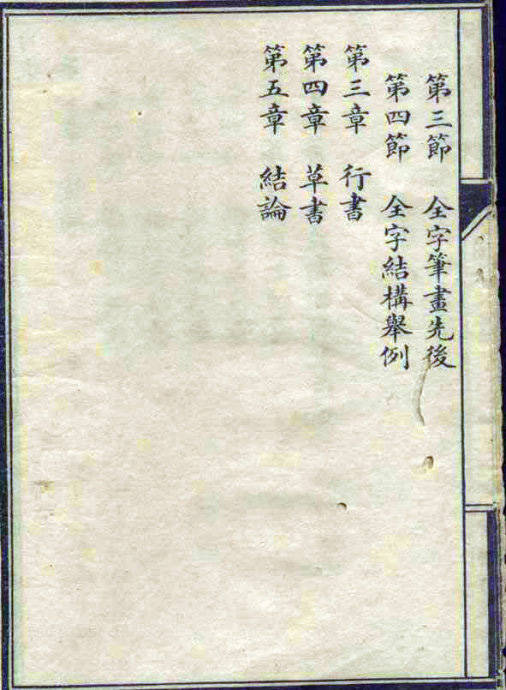 第三節 全字筆畫先後
第四節 全字結構舉例
第三章 行書
第四章 草書
第五章 結論